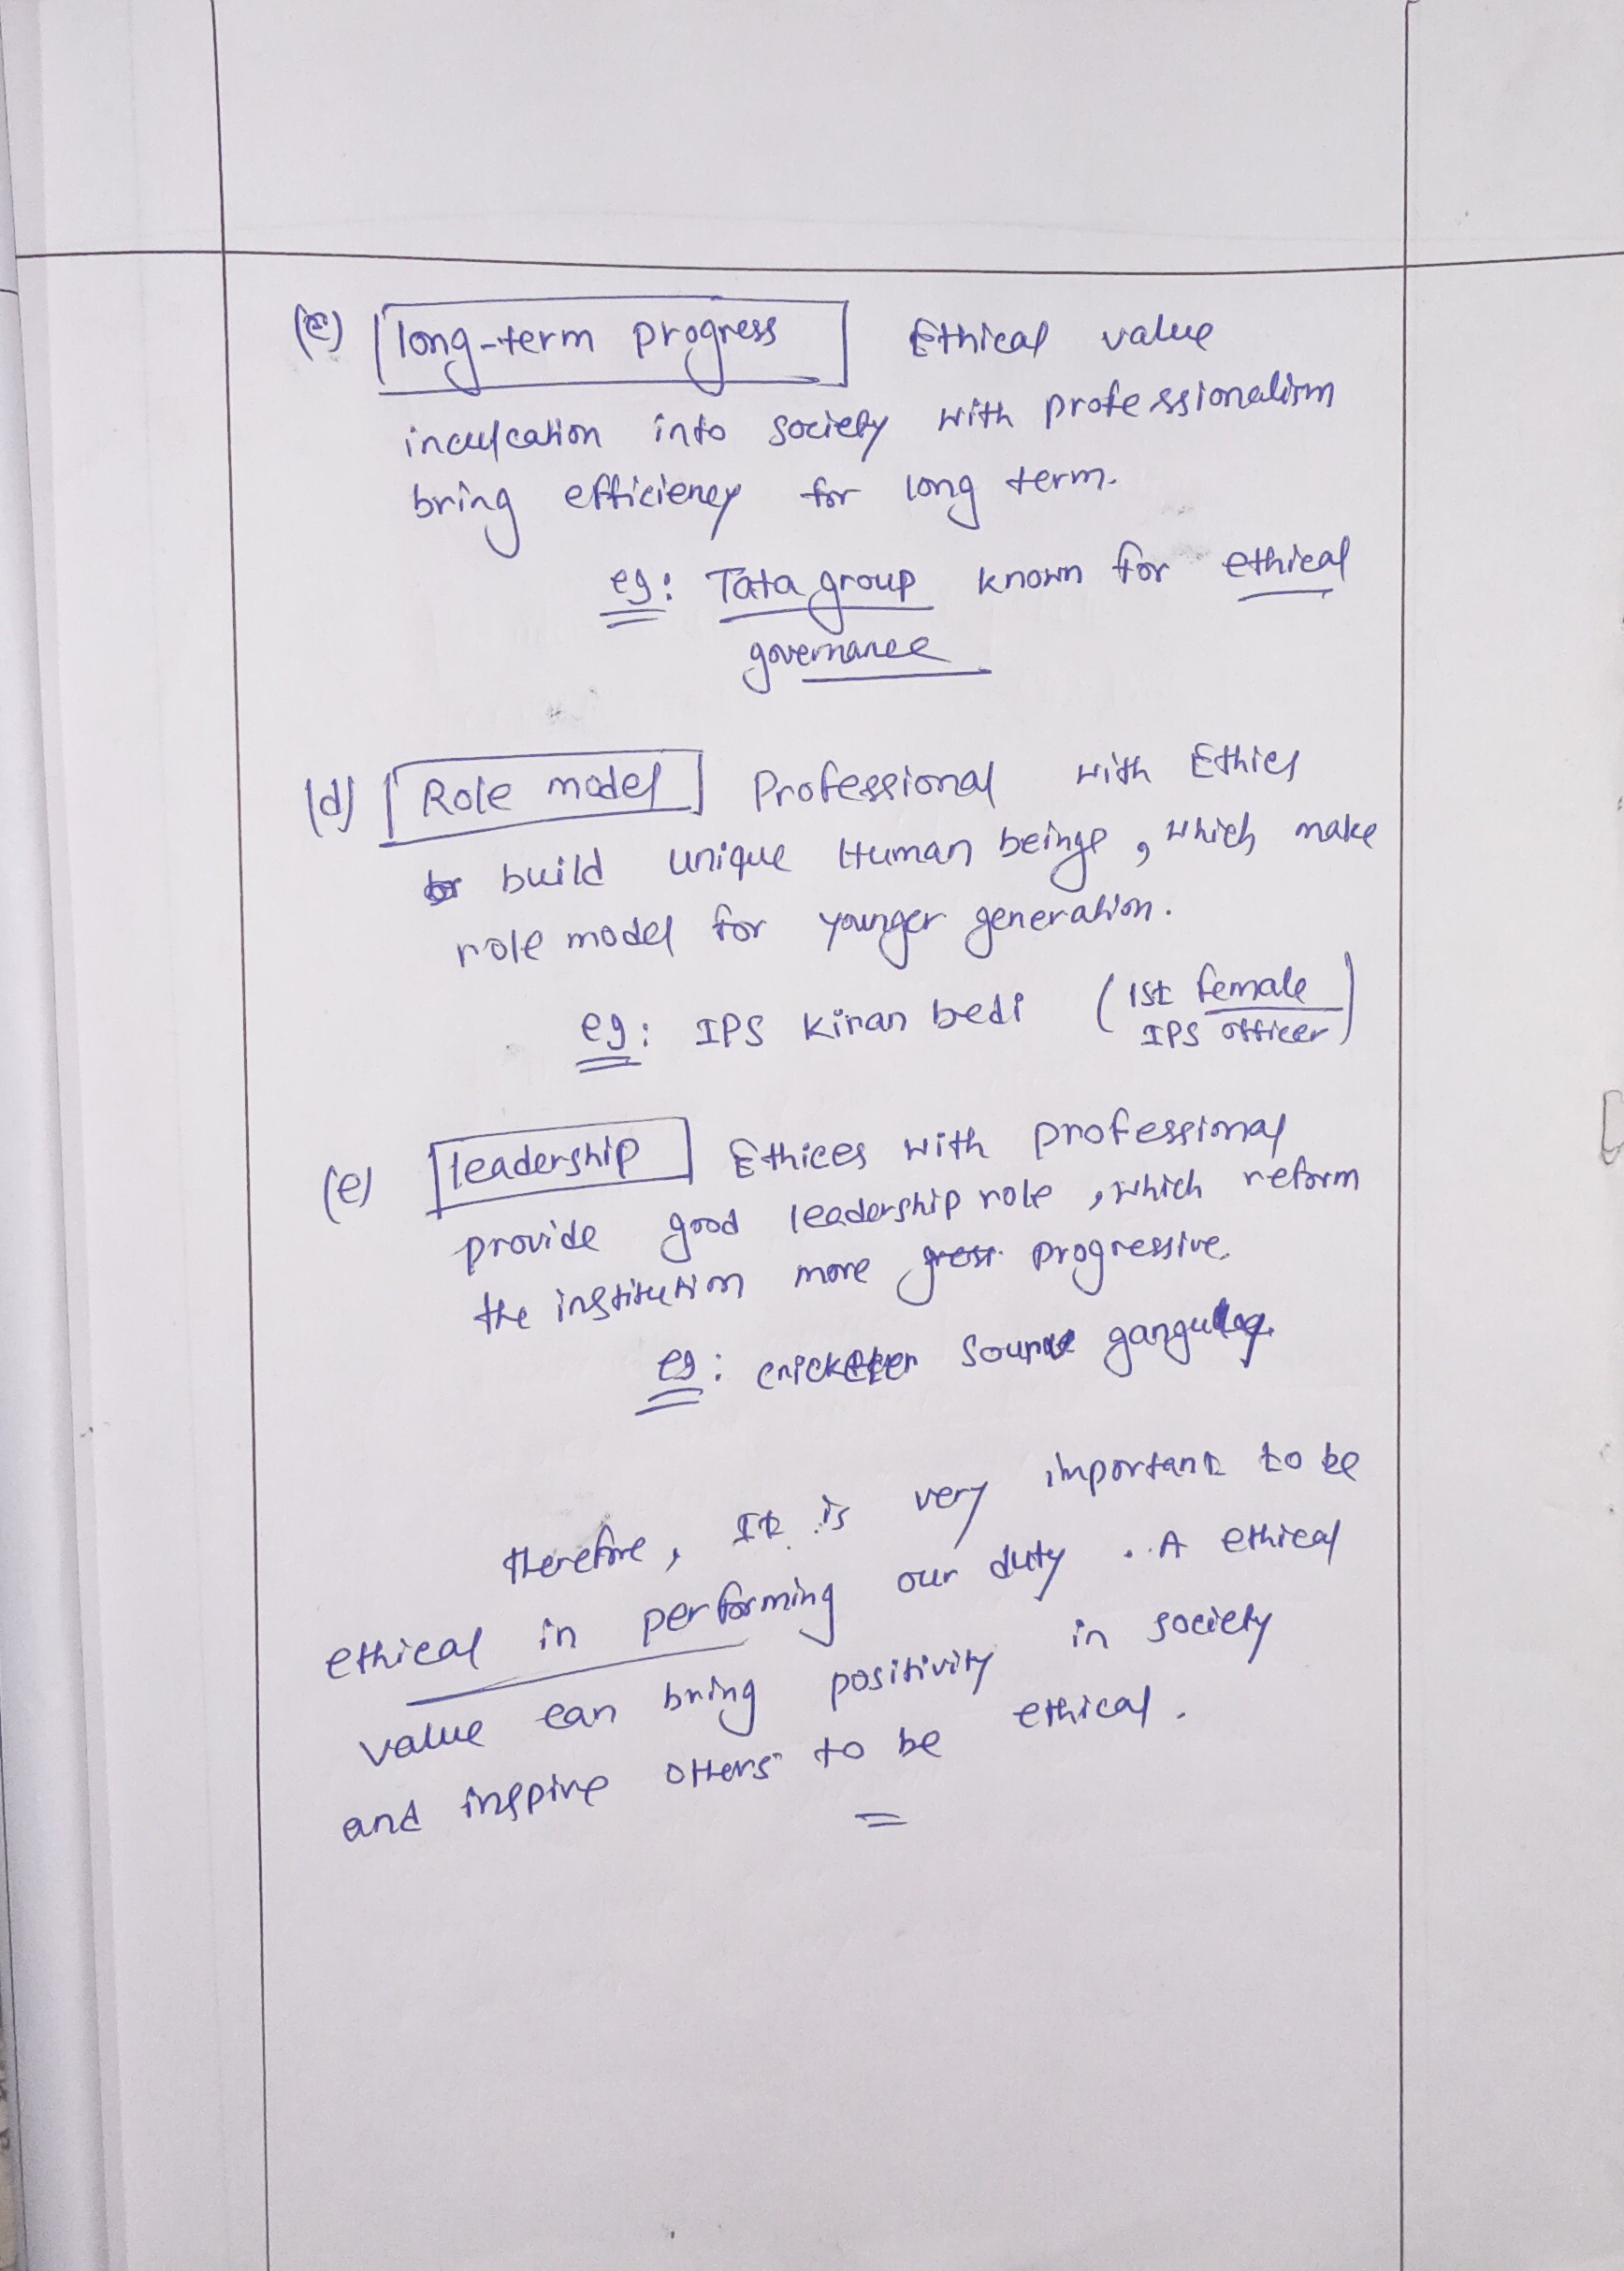 (c) long-term progress Ethical value
inculcation into society with professionalism
bring efficiency for long term.
eg: Tata group known for ethical
governance
(d) Role model Professional with Ethics
build unique Human beings, which make
role model for younger generation.
eg: IPS Kiran bedi (1st female
IPS officer)
(e) leadership Ethices with professional
provide good leadership role, which reform
the institution more progressive.
eg: cricketer Sourav ganguly.
therefore, It is very important to be
ethical in performing our duty. A ethical
value can bring positivity in society
and inspire others to be ethical.